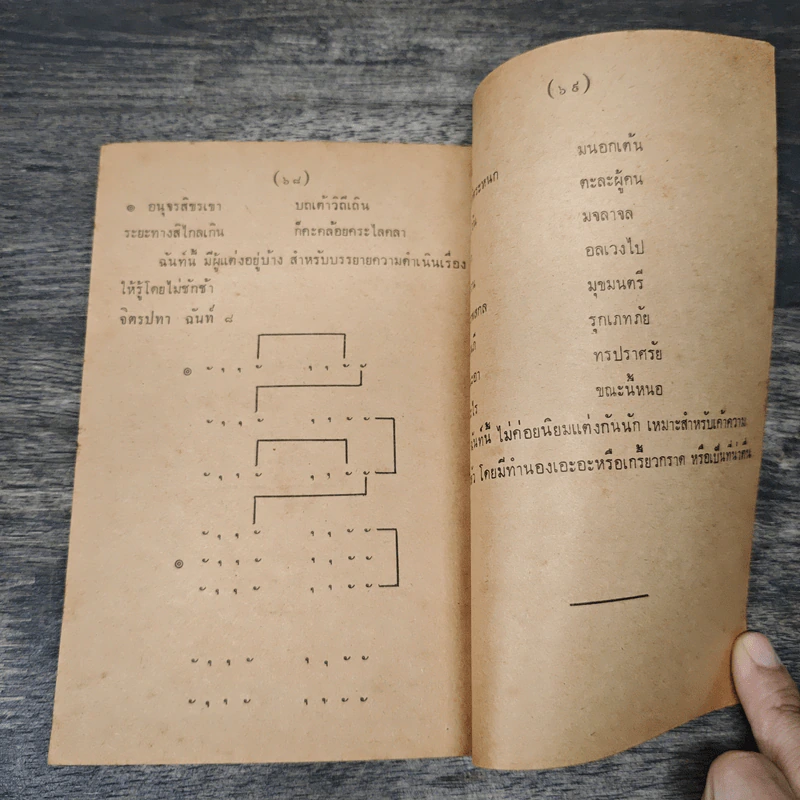 (๖๘)
๏ อนุจรสิขรเขา บถเต้าวิถีเถิน
ระยะทางสิไกลเกิน ก็คะคล้อยคระไลคลา
ฉันท์นี้ มีผู้แต่งอยู่บ้าง สำหรับบรรยายความดำเนินเรื่อง
ให้รู้โดยไม่ชักช้า
จิตรปทา ฉันท์ ๘
๏
๏
(๖๙)
มนอกเต้น
ตะละผู้คน
มจลาจล
อลเวงไป
มุขมนตรี
รุกเภทภัย
ทรปราศรัย
ขณะนี้หนอ
ฉันท์นี้ ไม่ค่อยนิยมแต่งกันนัก เหมาะสำหรับเค้าความ
โดยมีทำนองเอะอะหรือเกรี้ยวกราด หรือเป็นที่น่าตื่น